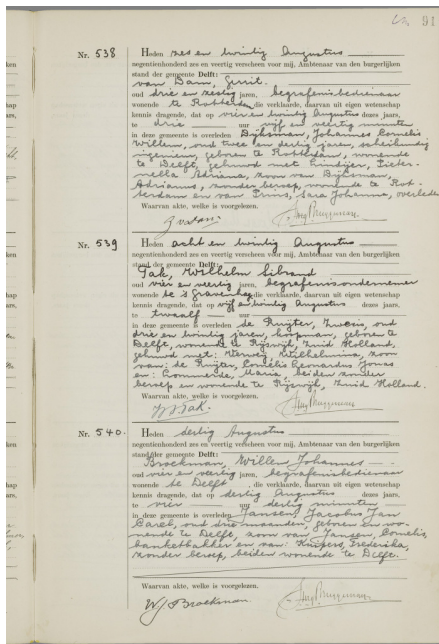 91
Nr. 538 Heden zes en twintig Augustus
negentienhonderd zes en veertig verscheen voor mij, Ambtenaar van den burgerlijken
stand der gemeente Delft:
van Dam, Gerrit.
oud drie en zestig jaren, begrafenisbedienaar
wonende te Rotterdam, die verklaarde, daarvan uit eigen wetenschap
kennis dragende, dat op vier en twintig Augustus dezes jaars,
te drie uur vijf en veertig minuten
in deze gemeente is overleden Dijksman, Johannes Cornelis
Willem, oud twee en dertig jaren, scheikundig
ingenieur, geboren te Rotterdam, wonende
te Delft, gehuwd met Lindijer, Pieter-
nella Adriana, zoon van Dijksman,
Adrianus, zonder beroep, wonende te Rot-
terdam en van Prins, Sara Johanna, overleden
Waarvan akte, welke is voorgelezen.
Nr. 539 Heden acht en twintig Augustus
negentienhonderd zes en veertig verscheen voor mij, Ambtenaar van den burgerlijken
stand der gemeente Delft:
Tak, Wilhelm Sibrand
oud vier en veertig jaren, begrafenisondernemer
wonende te 's Gravenhage, die verklaarde, daarvan uit eigen wetenschap
kennis dragende, dat op vijf en twintig Augustus dezes jaars,
te twaalf uur
in deze gemeente is overleden de Ruijter, oud
drie en twintig jaren, koopman, geboren te
Delft, wonende te Rijswijk, Zuid Holland,
gehuwd met: Wilhelmina, zoon
van: de Ruijter, Cornelis Leonardus Jonas
en: Maria, beiden zonder
beroep en wonende te Rijswijk, Zuid Holland.
Waarvan akte, welke is voorgelezen.
Tak.
Nr. 540. Heden dertig Augustus
negentienhonderd zes en veertig verscheen voor mij, Ambtenaar van den burgerlijken
stand der gemeente Delft:
Broekman, Willem Johannes
oud vier en veertig jaren, begrafenisbedienaar
wonende te Delft, die verklaarde, daarvan uit eigen wetenschap
kennis dragende, dat op dertig Augustus dezes jaars,
te vier uur dertig minuten
in deze gemeente is overleden Jansen, Jacobus Jan
Carel, oud drie maanden, geboren en wo-
nende te Delft, zoon van Jansen, Cornelis,
banketbakker en van: Kuipers, Frederika,
zonder beroep, beiden wonende te Delft.
Waarvan akte, welke is voorgelezen.
W.J. Broekman